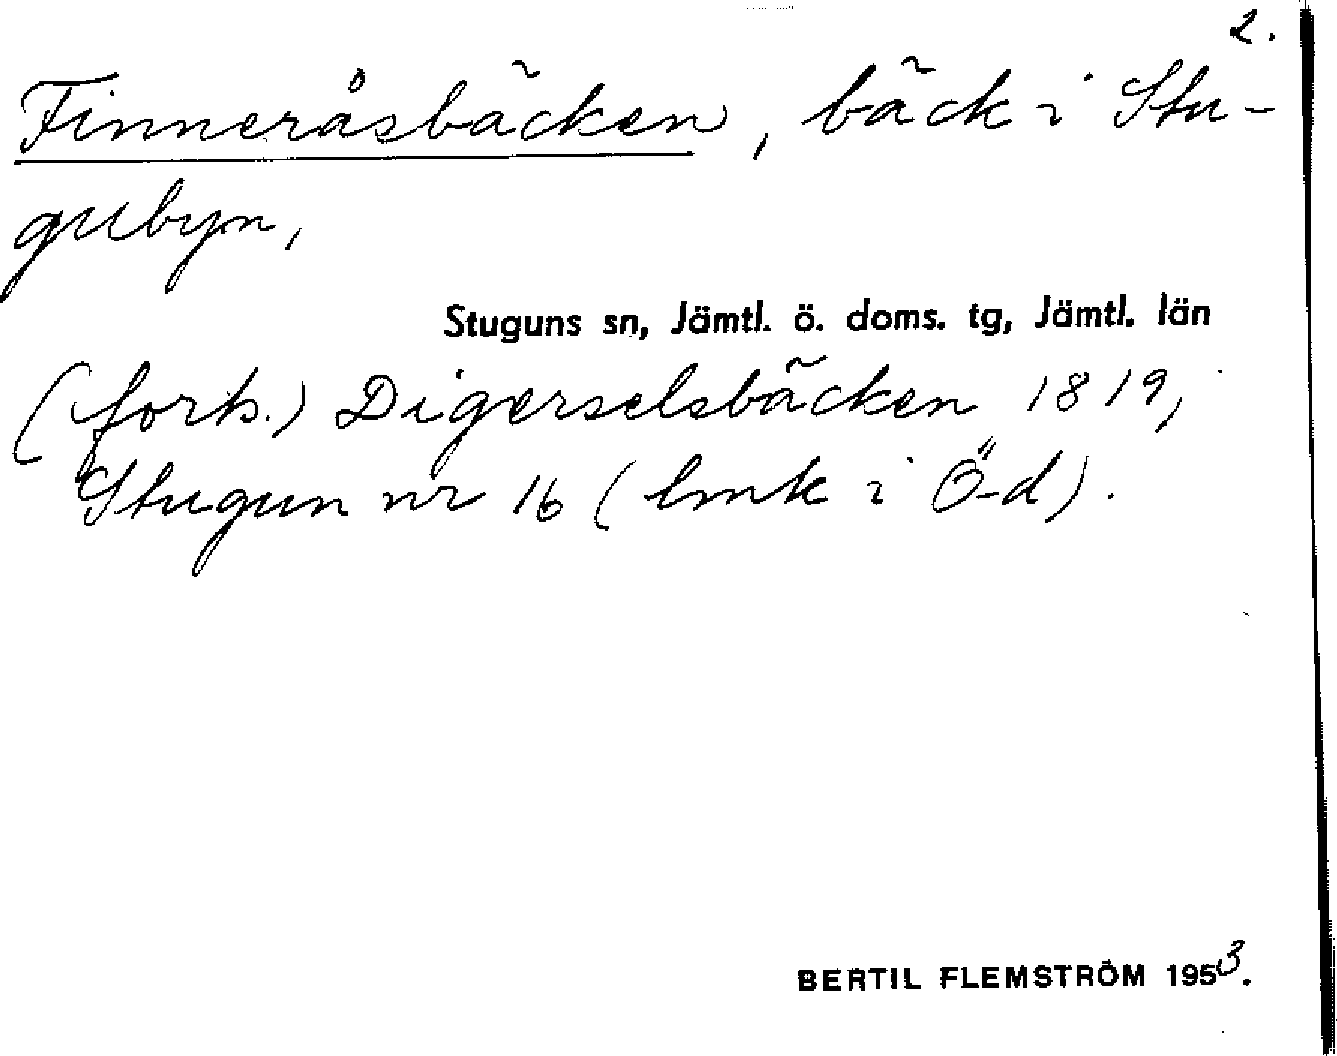 2.
Finneråsbäcken, bäck i Stu-
gubyn,
Stuguns sn, Jämtl. ö. doms. tg, Jämtl. län
(forts.) Digerselsbäcken 1819,
Stugun nr 16 (lmk i Ö-d).
BERTIL FLEMSTRÖM 1953.